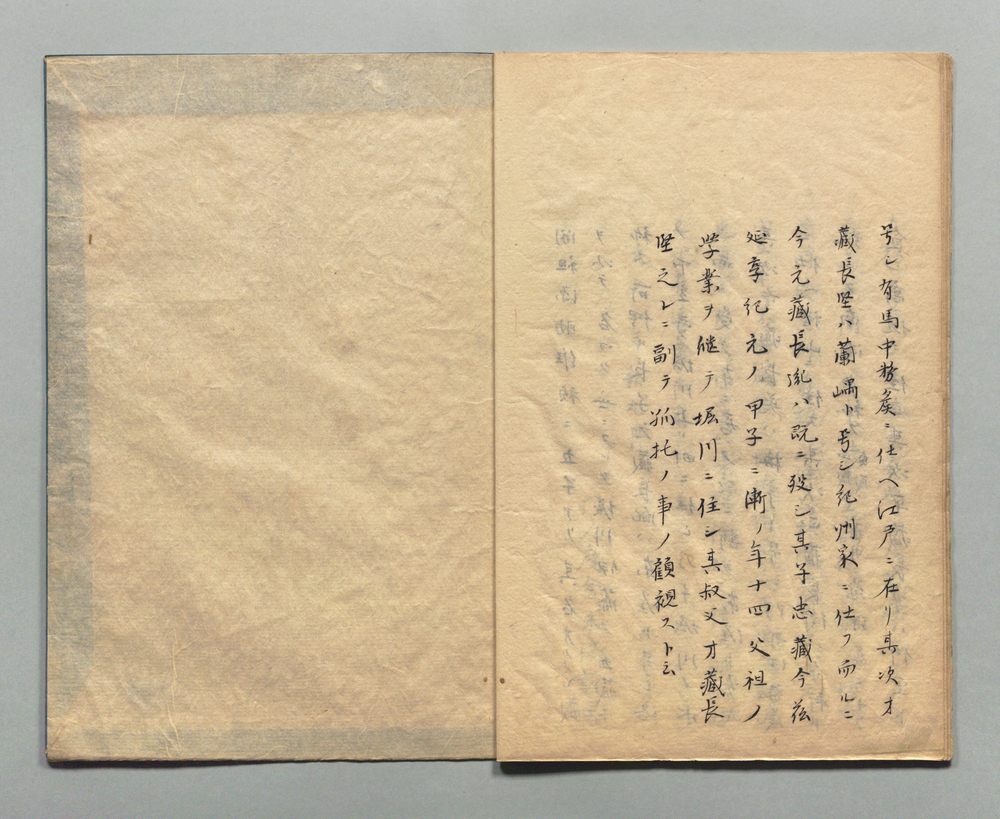 号シ有馬中務矦ニ仕ヘ江戸ニ在リ其次才
藏長堅ハ蘭嵎ト号シ紀州家ニ仕フ而ルニ
今元藏長胤ハ既ニ歿シ其子忠藏今茲
延享紀元ノ甲子ニ漸ノ年十四父祖ノ
学業ヲ継テ堀川ニ住シ其叔父才藏長
堅之レニ副テ孤托ノ事ノ顧視スト云